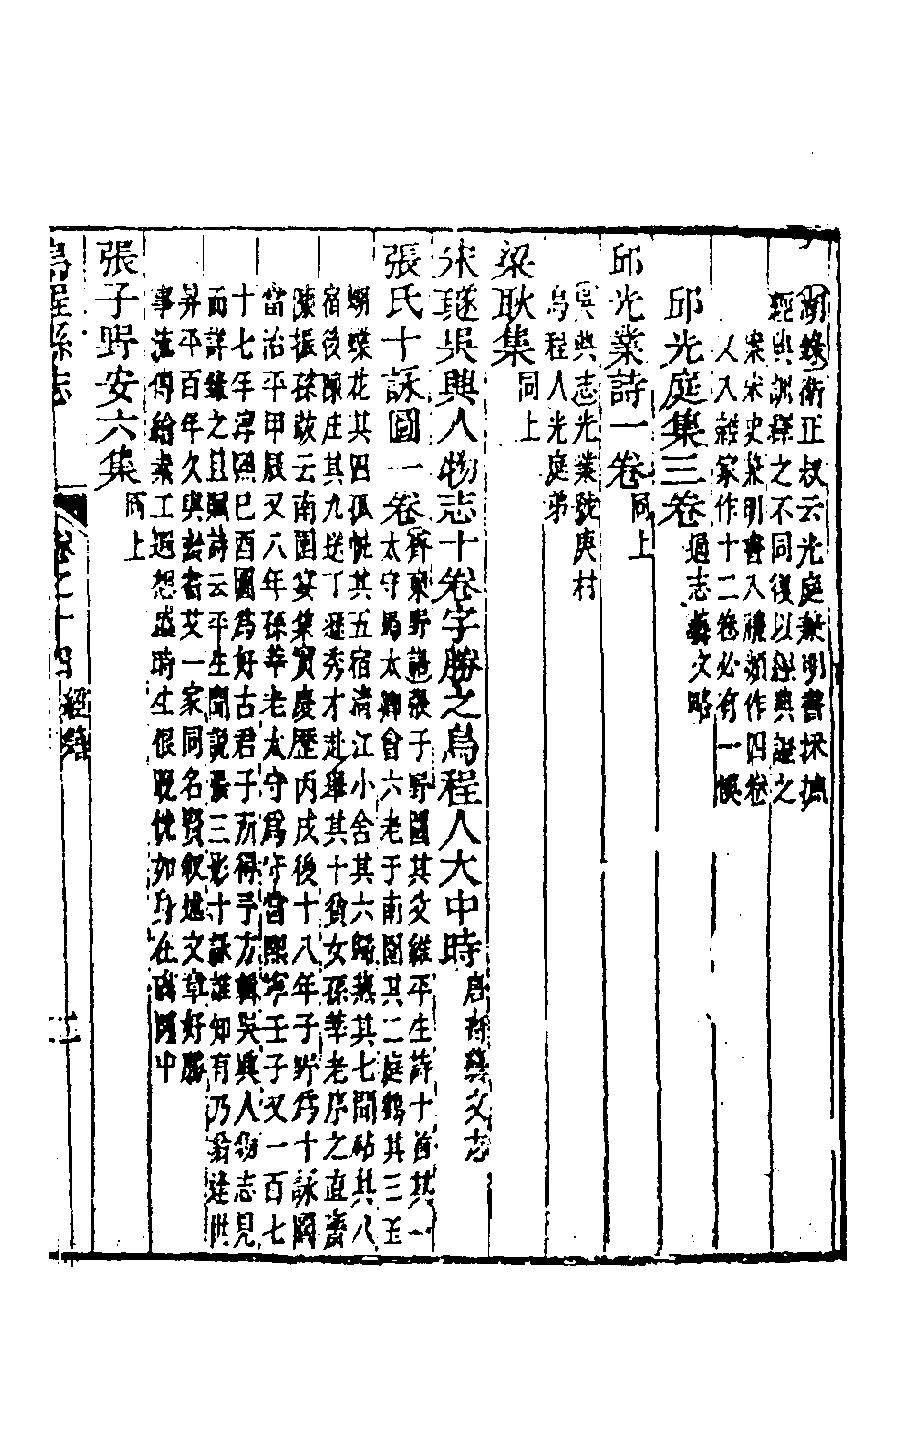 湖錄衛正叔云光庭兼明書採摭
經典訓釋之不同復以經典證之
案宋史兼明書入禮類作四卷
又入雜家作十二卷必有一誤
邱光庭集三卷通志藝文略
邱光業詩一卷同上
吳興志光業號庾村
烏程人光庭弟
梁耿集同上
宋璲吳興人物志十卷字勝之烏程人大中時唐書藝文志
張氏十詠圖一卷齊東野語張子野圖其父維平生詩十首其一
太守馬太卿會六老于南園其二庭鶴其三玉
蝴蝶花其四孤帆其五宿清江小舍其六歸燕其七聞砧其八
宿後陳庄其九送丁遜秀才赴舉其十貧女孫莘老序之直齋
陳振孫跋云南園宴集實慶歷丙戌後十八年子野爲十詠圖
當治平甲辰又八年孫莘老太守爲序當熙寧壬子又一百七
十七年淳祐己酉圖爲好古君子所得予方輯吳興人物志見
而詳錄之且賦詩云平生聞說張三影十詠誰知有乃翁逢世
昇平百年久與齡耆艾一家同名賢敘述文章好勝
事流傳繪素工遐想盛時生恨晚恍如身在畫圖中
張子野安六集同上
烏程縣志
卷之十四 經籍
二